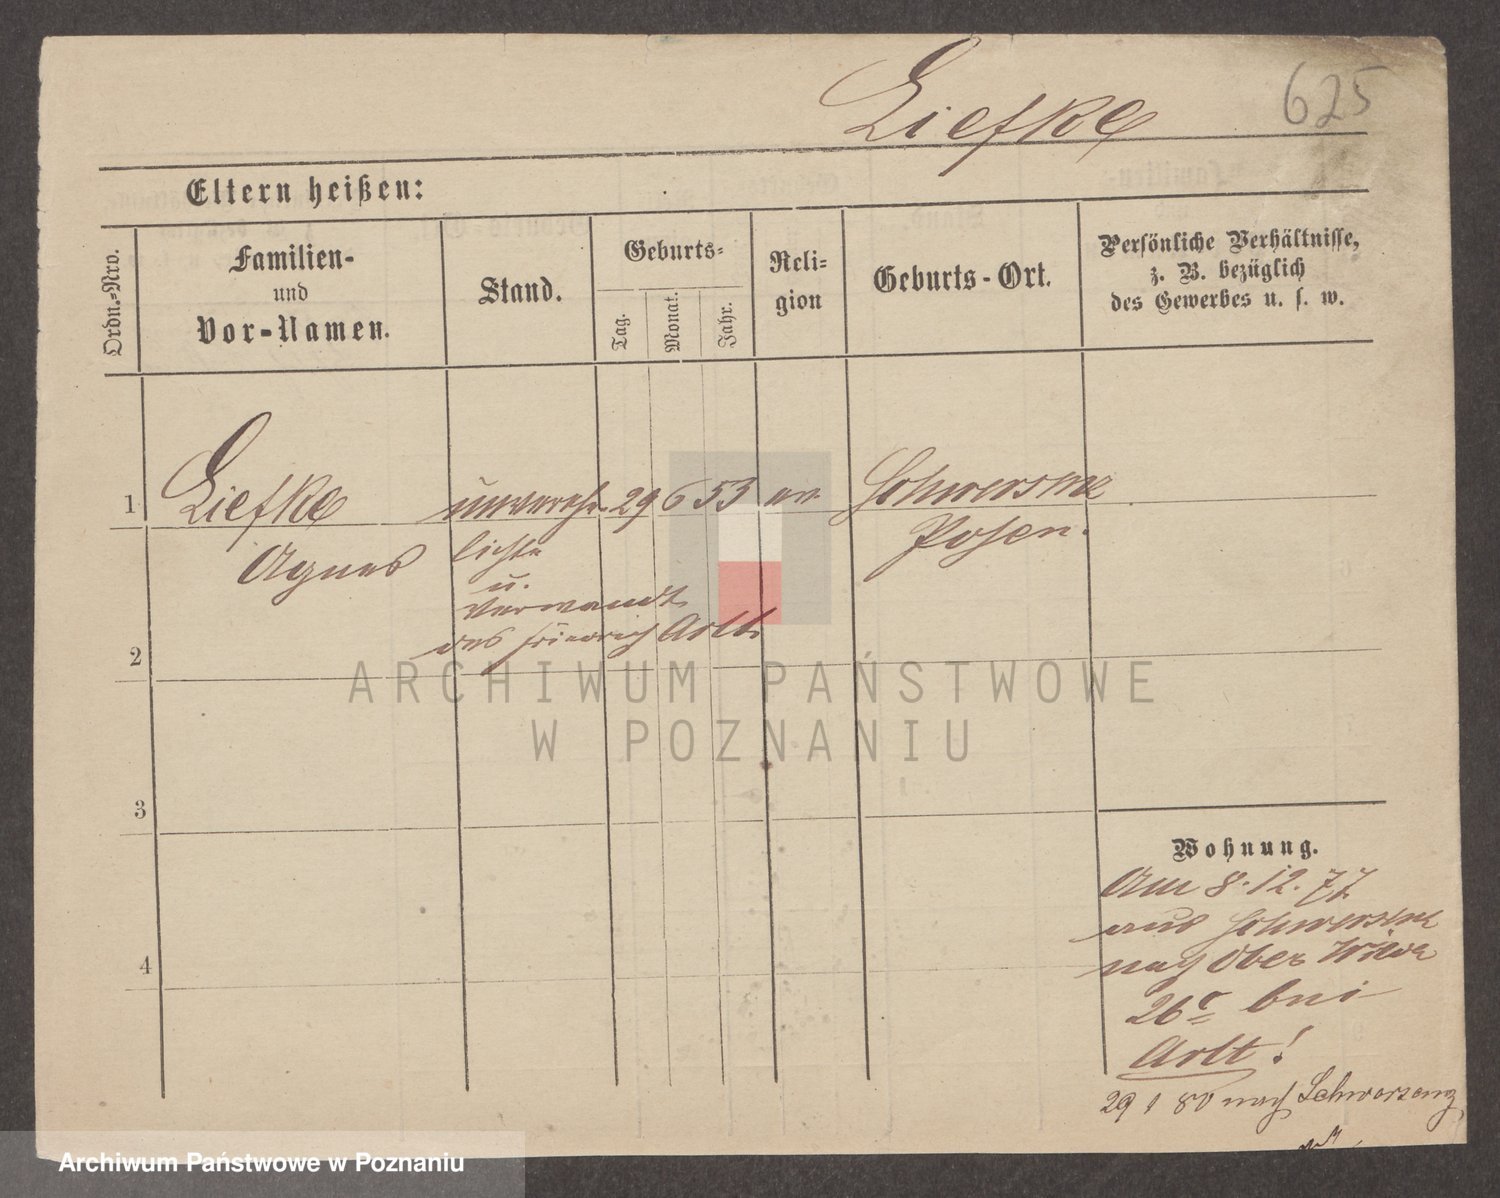 Liefke
625
Eltern heißen:
Ordn.-Nro.
Familien-
und
Vor-Namen.
Stand.
Geburts-
Tag.
Monat.
Jahr.
Reli-
gion
Geburts-Ort.
Persönliche Verhältnisse,
z. B. bezüglich
des Gewerbes u. s. w.
1 Liefke unvereh- 29 6 53 ev. Schwersenz
Agnes lichte Posen.
u.
Verwandt
des Friedrich Arlt.
2
3
4
ARCHIWUM PAŃSTWOWE
W POZNANIU
Wohnung.
Am 8.12.77
aus Schwersenz
nach Ober
26 bei
Arlt!
29 1 80 nach Schwersenz
Archiwum Państwowe w Poznaniu